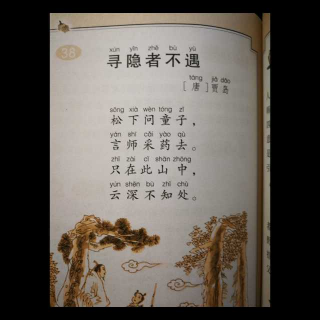 38
xún yǐn zhě bù yù
寻隐者不遇
táng jiǎ dǎo
[唐]贾岛
sōng xià wèn tóng zǐ
松下问童子，
yán shī cǎi yào qù
言师采药去。
zhǐ zài cǐ shān zhōng
只在此山中，
yún shēn bù zhī chù
云深不知处。